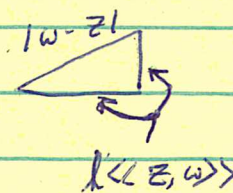 |w-z|
l<<z,w>>